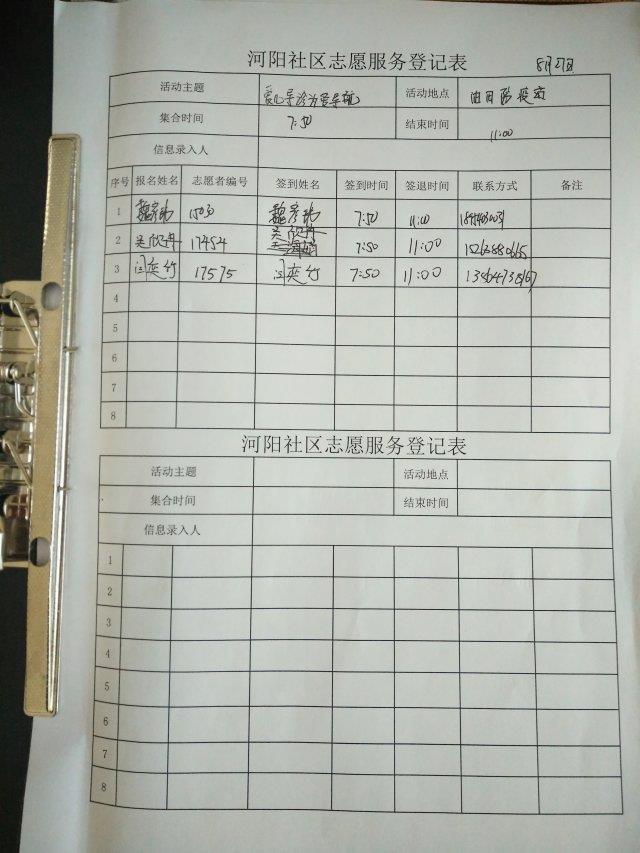 河阳社区志愿服务登记表 8月27日
活动主题 活动地点
集合时间 7:50 结束时间 11:00
信息录入人
序号 报名姓名 志愿者编号 签到姓名 签到时间 签退时间 联系方式 备注
1 7:50 11:00
2 吴欣冉 17454 吴欣冉 7:50 11:00
3 闫奕竹 17575 闫奕竹 7:50 11:00
4
5
6
7
8
河阳社区志愿服务登记表
活动主题 活动地点
集合时间 结束时间
信息录入人
1
2
3
4
5
6
7
8